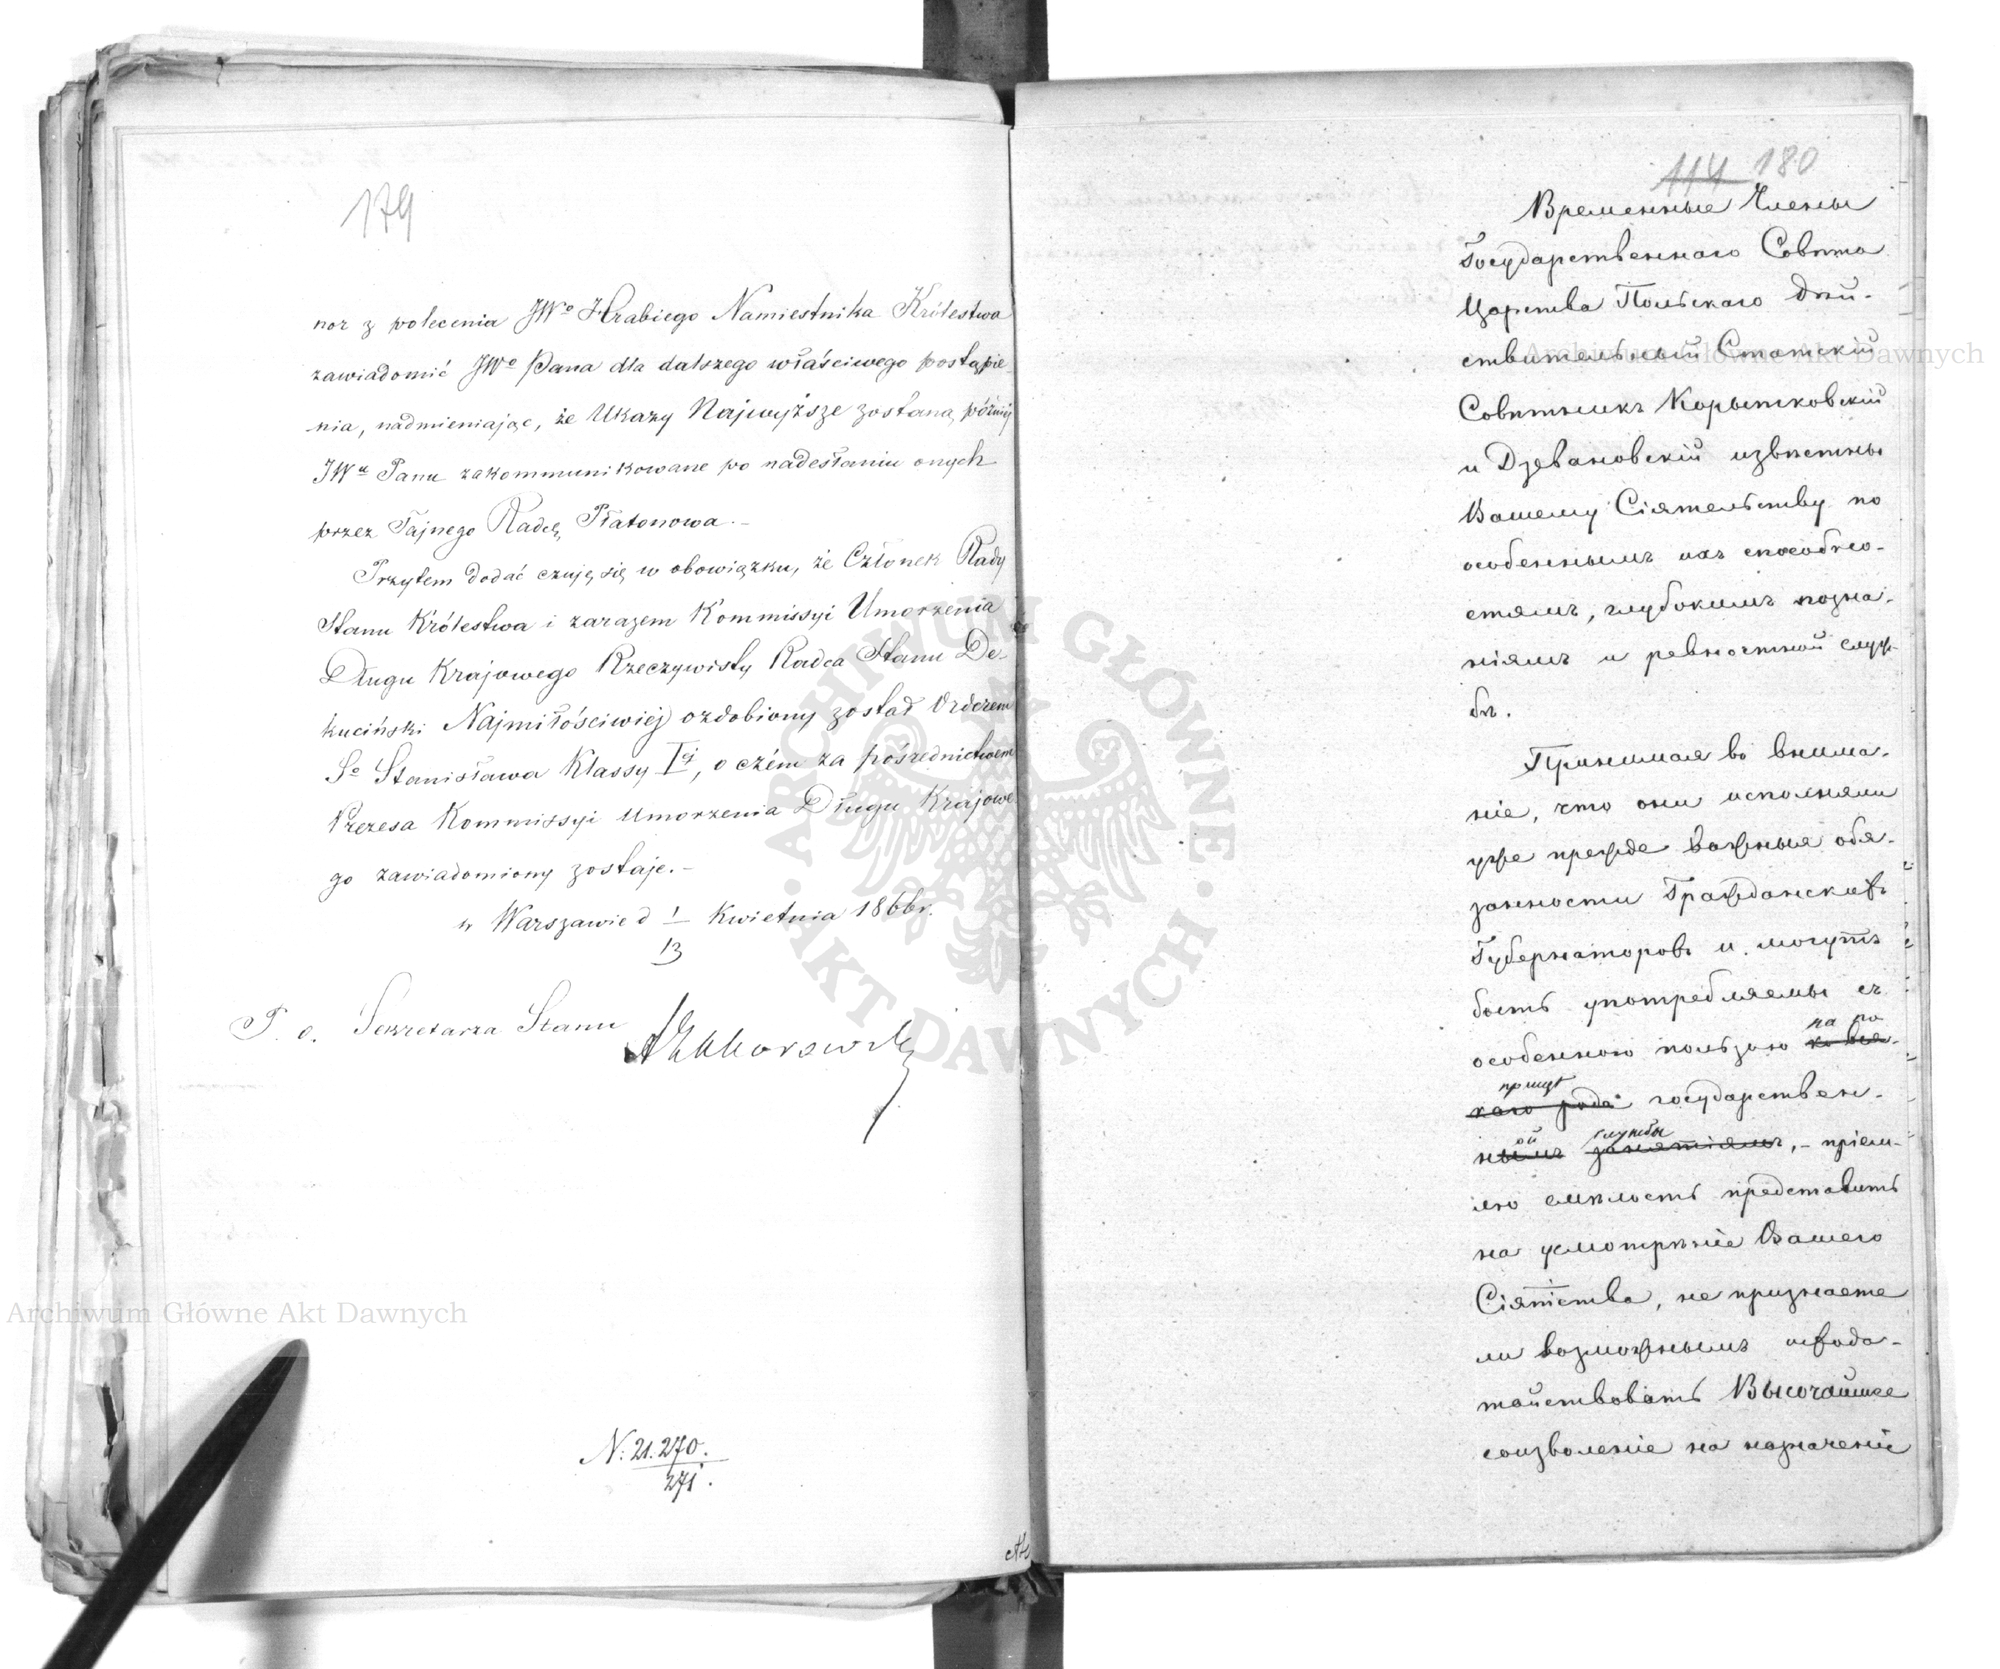 179
nor z polecenia JWo Hrabiego Namiestnika Królestwa
zawiadomić JWo Pana dla dalszego właściwego postąpie-
nia, nadmieniając, że Ukazy Najwyższe zostaną później
JWu Panu zakommunikowane po nadesłaniu onych
przez Tajnego Radcę Płatonowa.-
Przytem dodać czuję się w obowiązku, że Członek Rady
Stanu Królestwa i zarazem Kommissyi Umorzenia
Długu Krajowego Rzeczywisty Radca Stanu De-
kuciński Najmiłościwiej ozdobiony został Orderem
So Stanisława Klassy Iej, o czém za pośrednictwem
Prezesa Kommissyi Umorzenia Długu Krajowe-
go zawiadomiony zostaje.-
w Warszawie d 1/13 Kwietnia 1866r.
P. o. Sekretarza Stanu
N: 21.270.
271.
114 180
Временные Члены
Государственнаго Совѣта
Царства Польскаго Дѣй-
ствительный Статскій
Совѣтникъ Корытковскій
и Дзевановскій извѣстны
Вашему Сіятельству по
особеннымъ ихъ способно-
стямъ, глубокимъ позна-
ніямъ и ревностной служ-
бѣ.
Принимая во внима-
ніе, что они исполняли
уже прежде важныя обя-
занности Гражданскихъ
Губернаторовъ и могутъ
быть употребляемы съ
на по
особенною пользою ко вся-
прищѣ
каго рода государствен-
ой службы
нымъ занятіямъ, - пріем-
лю смѣлость представить
на усмотрѣніе Вашего
Сіятства, не признаете
ли возможнымъ исхода-
тайствовать Высочайшее
соизволеніе на назначеніе
Archiwum Główne Akt Dawnych
Archiwum Główne Akt Dawnych
ARCHIWUM GŁÓWNE AKT DAWNYCH